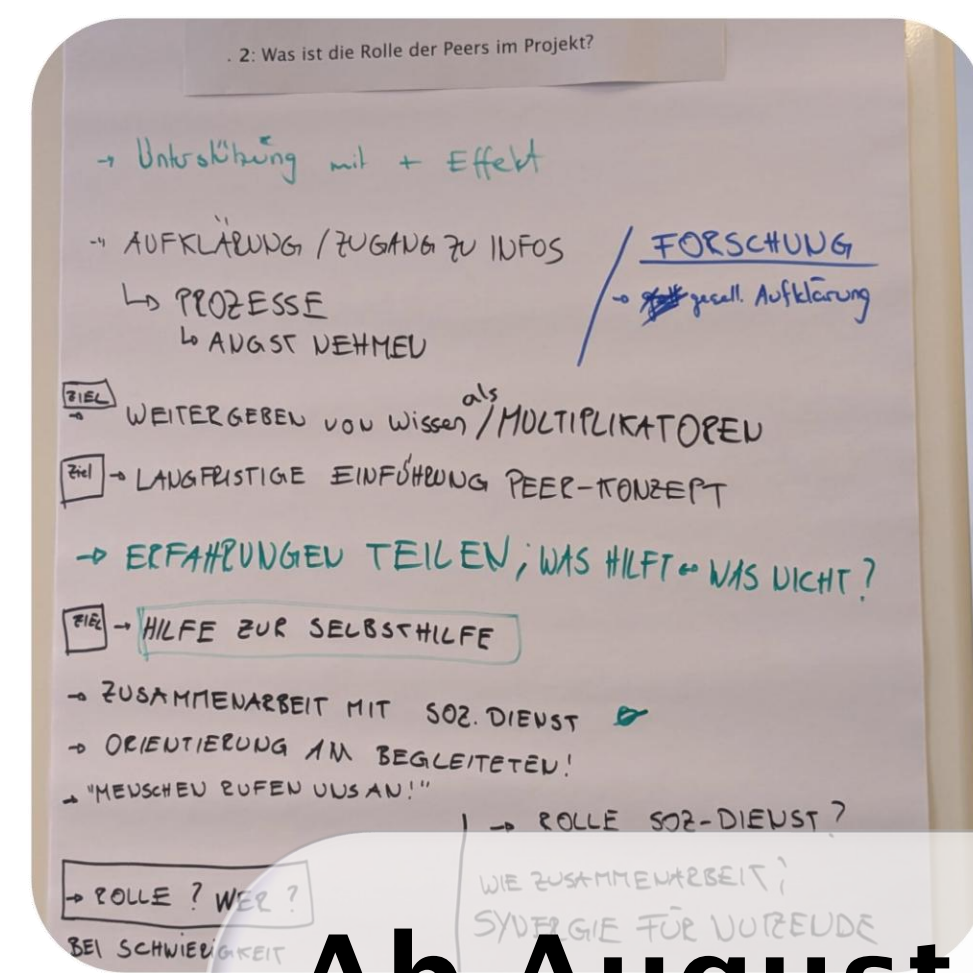 . 2: Was ist die Rolle der Peers im Projekt?
→ Unterstützung mit + Effekt
→ AUFKLÄRUNG / ZUGANG ZU INFOS
↳ PROZESSE
↳ ANGST NEHMEN
FORSCHUNG
→ gesell. Aufklärung
ZIEL → WEITERGEBEN VON Wissen als / MULTIPLIKATOREN
Ziel → LANGFRISTIGE EINFÜHRUNG PEER-KONZEPT
→ ERFAHRUNGEN TEILEN; WAS HILFT ↔ WAS NICHT?
ZIEL → HILFE ZUR SELBSTHILFE
→ ZUSAMMENARBEIT MIT SOZ. DIENST
→ ORIENTIERUNG AM BEGLEITETEN!
→ "MENSCHEN RUFEN UNS AN!"
→ ROLLE ? WER ?
BEI SCHWIERIGKEIT
→ ROLLE SOZ-DIENST?
WIE ZUSAMMENARBEIT;
SYNERGIE FÜR NUTZENDE
Ab August